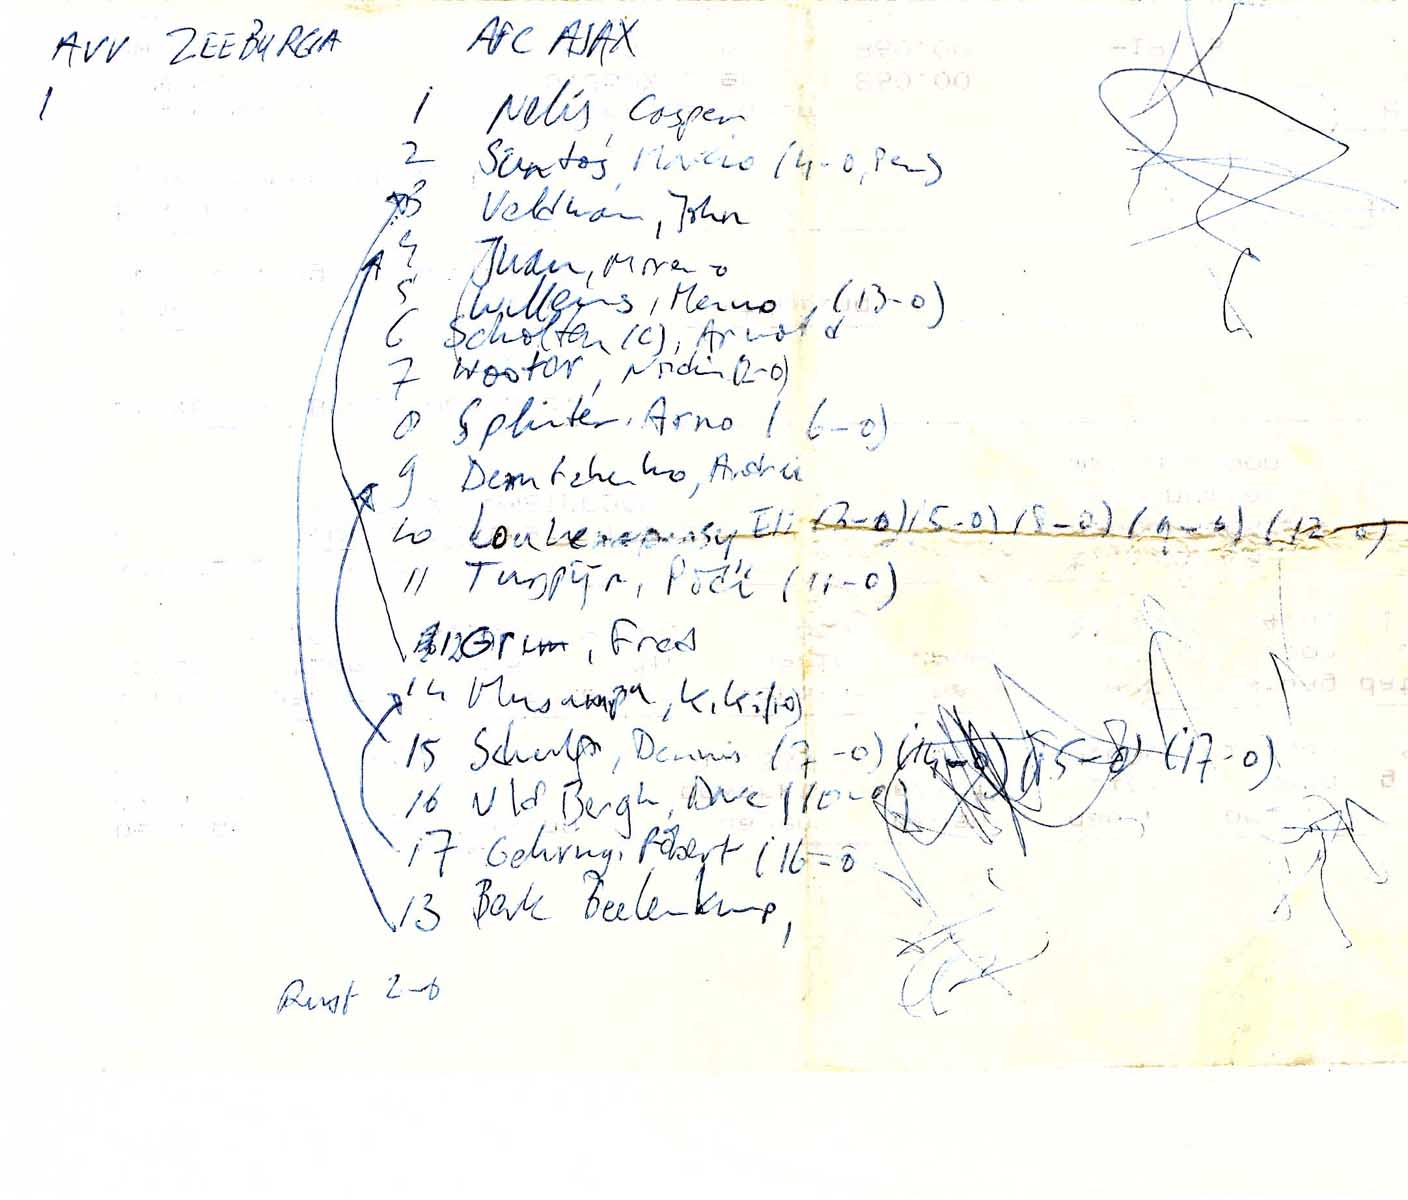 AVV ZEEBURGIA AFC AJAX
1
1 Nelis, Casper
2 Santos, Marcio (4-0, Pen)
3 Veldman, John
4 Juan, Moreno
5 Willems, Menno, (13-0)
6 Scholten (c), Arnold
7 Wooter, Nordin (2-0)
8 Splinter, Arno (6-0)
9 Demtchenko, Andrei
10 Louhenapessy Eli (3-0) (5-0) (8-0) (9-0) (12-0)
11 Turpijn, Pöck (11-0)
12 Grim, Fred
14 Musampa, Kiki (1-0)
15 Schulp, Dennis (7-0) (14-0) (15-0) (17-0)
16 v/d Bergh, Dave (10-0)
17 Gehring, Robert (16-0
13 Beelenkamp,
Rust 2-0